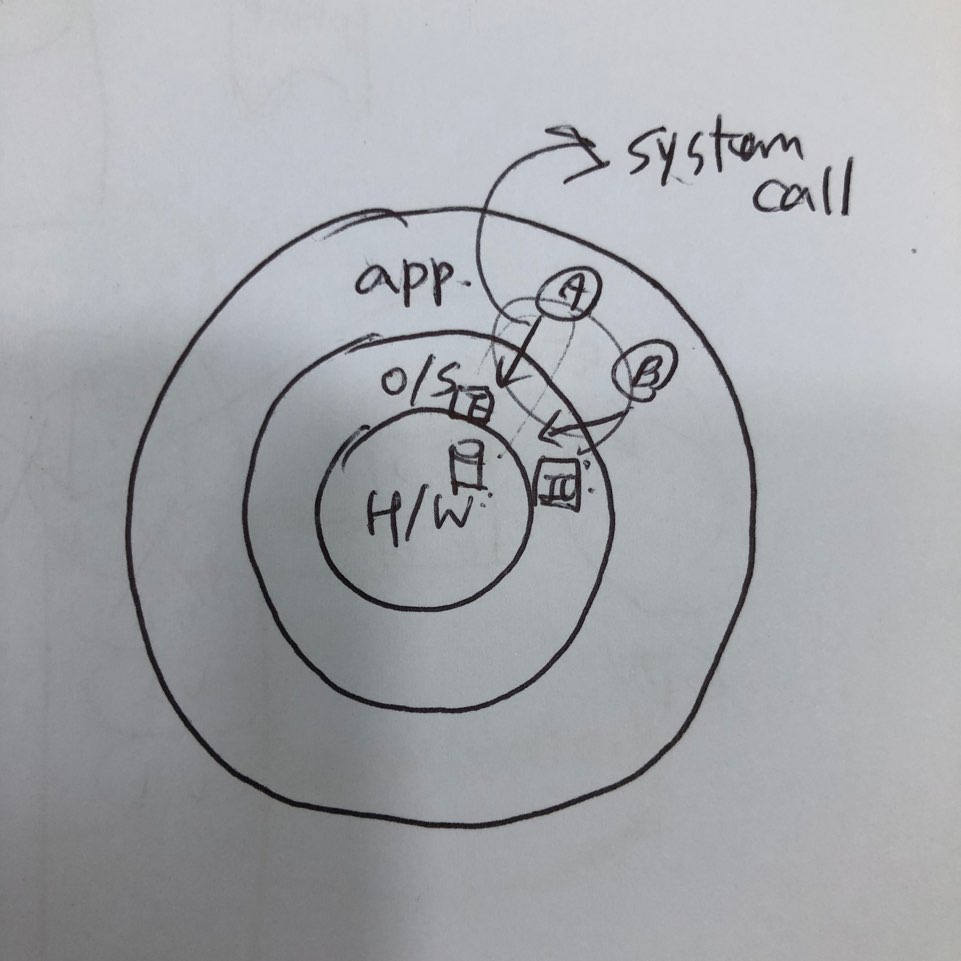 system
call
app.
A
B
O/S
H/W